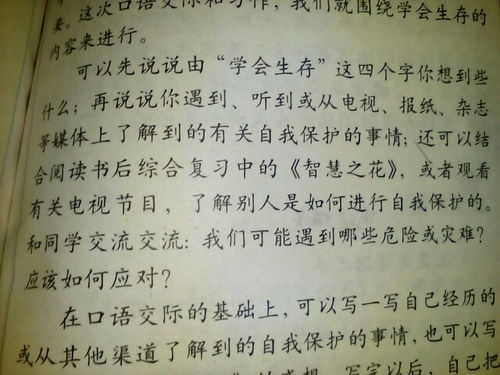 要。这次口语交际和习作，我们就围绕学会生存的
内容来进行。
可以先说说由“学会生存”这四个字你想到些
什么；再说说你遇到、听到或从电视、报纸、杂志
等媒体上了解到的有关自我保护的事情；还可以结
合阅读书后综合复习中的《智慧之花》，或者观看
有关电视节目，了解别人是如何进行自我保护的。
和同学交流交流：我们可能遇到哪些危险或灾难？
应该如何应对？
在口语交际的基础上，可以写一写自己经历的
或从其他渠道了解到的自我保护的事情，也可以写
感想。写完以后，自己把